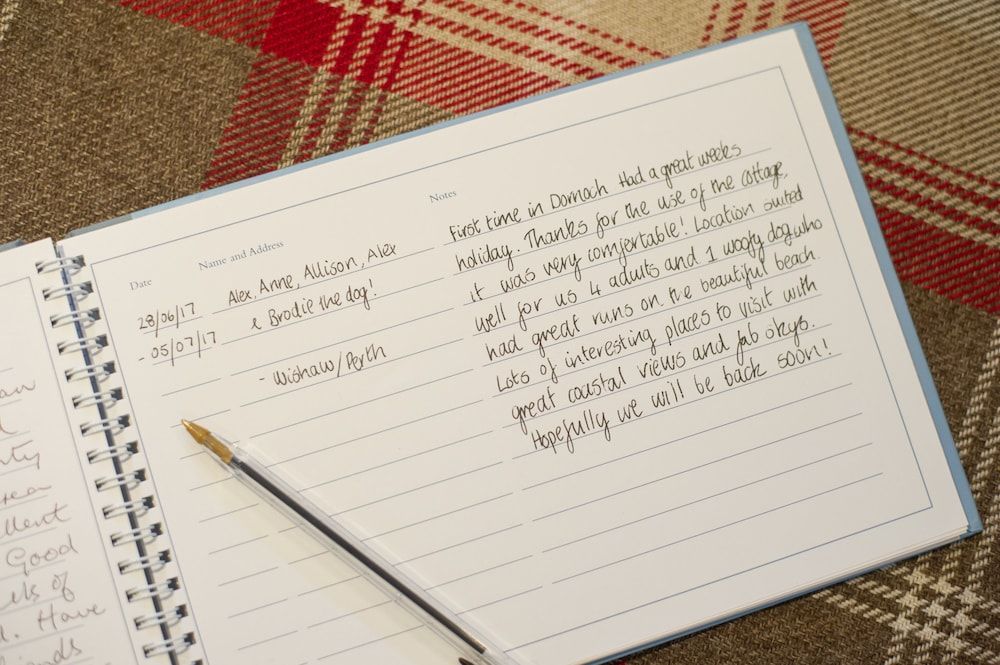 aw
nty
rea
llent
Good
ls of
Have
ends
Date
Name and Address
Notes
28/06/17
- 05/07/17
Alex, Anne, Allison, Alex
& Brodie the dog!
- Wishaw/Perth
First time in Dornoch Had a great weeks
holiday. Thanks for the use of the cottage,
it was very comfortable! Location suited
well for us 4 adults and 1 woofy dog who
had great runs on the beautiful beach.
Lots of interesting places to visit with
great coastal views and fab skys.
Hopefully we will be back soon!